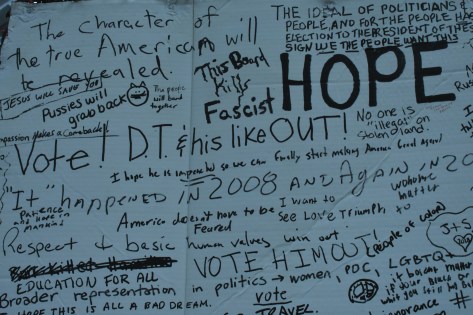 The character of
the true American will
be revealed.
JESUS WILL SAVE YOU
Pussies will
grab back
The people
will band
together
This Board
Kills
Fascist
THE IDEAL OF POLITICIANS
PEOPLE, AND FOR THE PEOPLE
ELECTION TO THE PRESIDENT OF THESE
SIGN WE THE PEOPLE WANT THIS
HOPE
No one is
"illegal" on
stolen land.
makes a Comeback!
Vote! D.T. & his like OUT!
I hope he is impeached so we can finally start making America Great again
"It" happened in 2008 and Again in 20
Patience
America doesn't have to be
Feared
I want to
see Love Triumph
Respect & basic human values win out.
VOTE HIM OUT!
(People of Color)
J+S
EDUCATION FOR ALL
Broader representation in politics → women, POC, LGBTQ+
HOPE THIS IS ALL A BAD DREAM.
vote
TRAVEL.
ignorance #